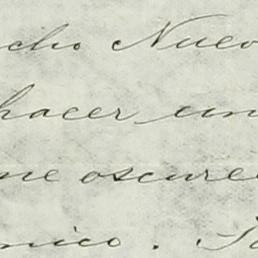 cho Nuevo
hacer un
me oscure
nico.